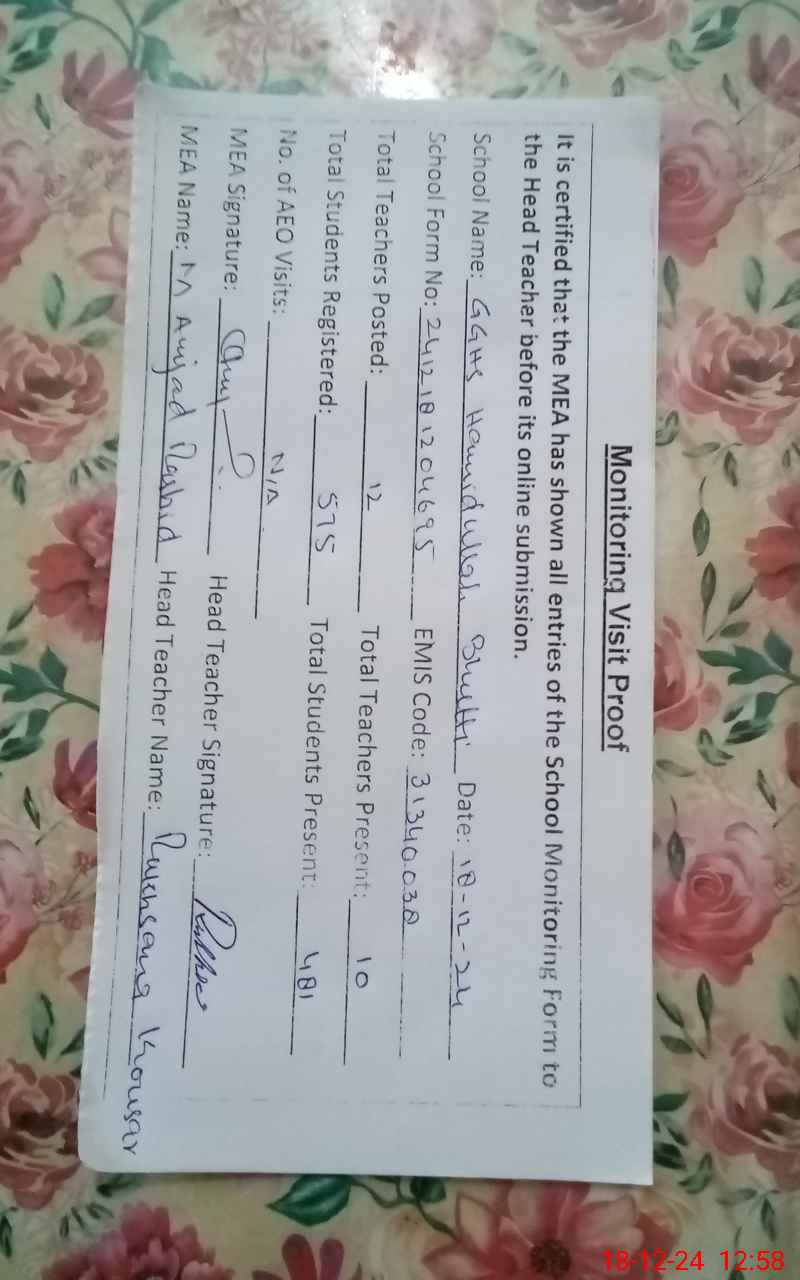 Monitoring Visit Proof
It is certified that the MEA has shown all entries of the School Monitoring Form to
the Head Teacher before its online submission.
School Name: GGHS Hamidullah Bhutti Date: 18-12-24
School Form No: 241218 1204695 EMIS Code: 31340038
Total Teachers Posted: 12 Total Teachers Present: 10
Total Students Registered: 575 Total Students Present: 481
No. of AEO Visits: N/A
MEA Signature: Head Teacher Signature:
MEA Name: M Amjad Rashid Head Teacher Name: Rukhsana Kousar
18-12-24 12:58